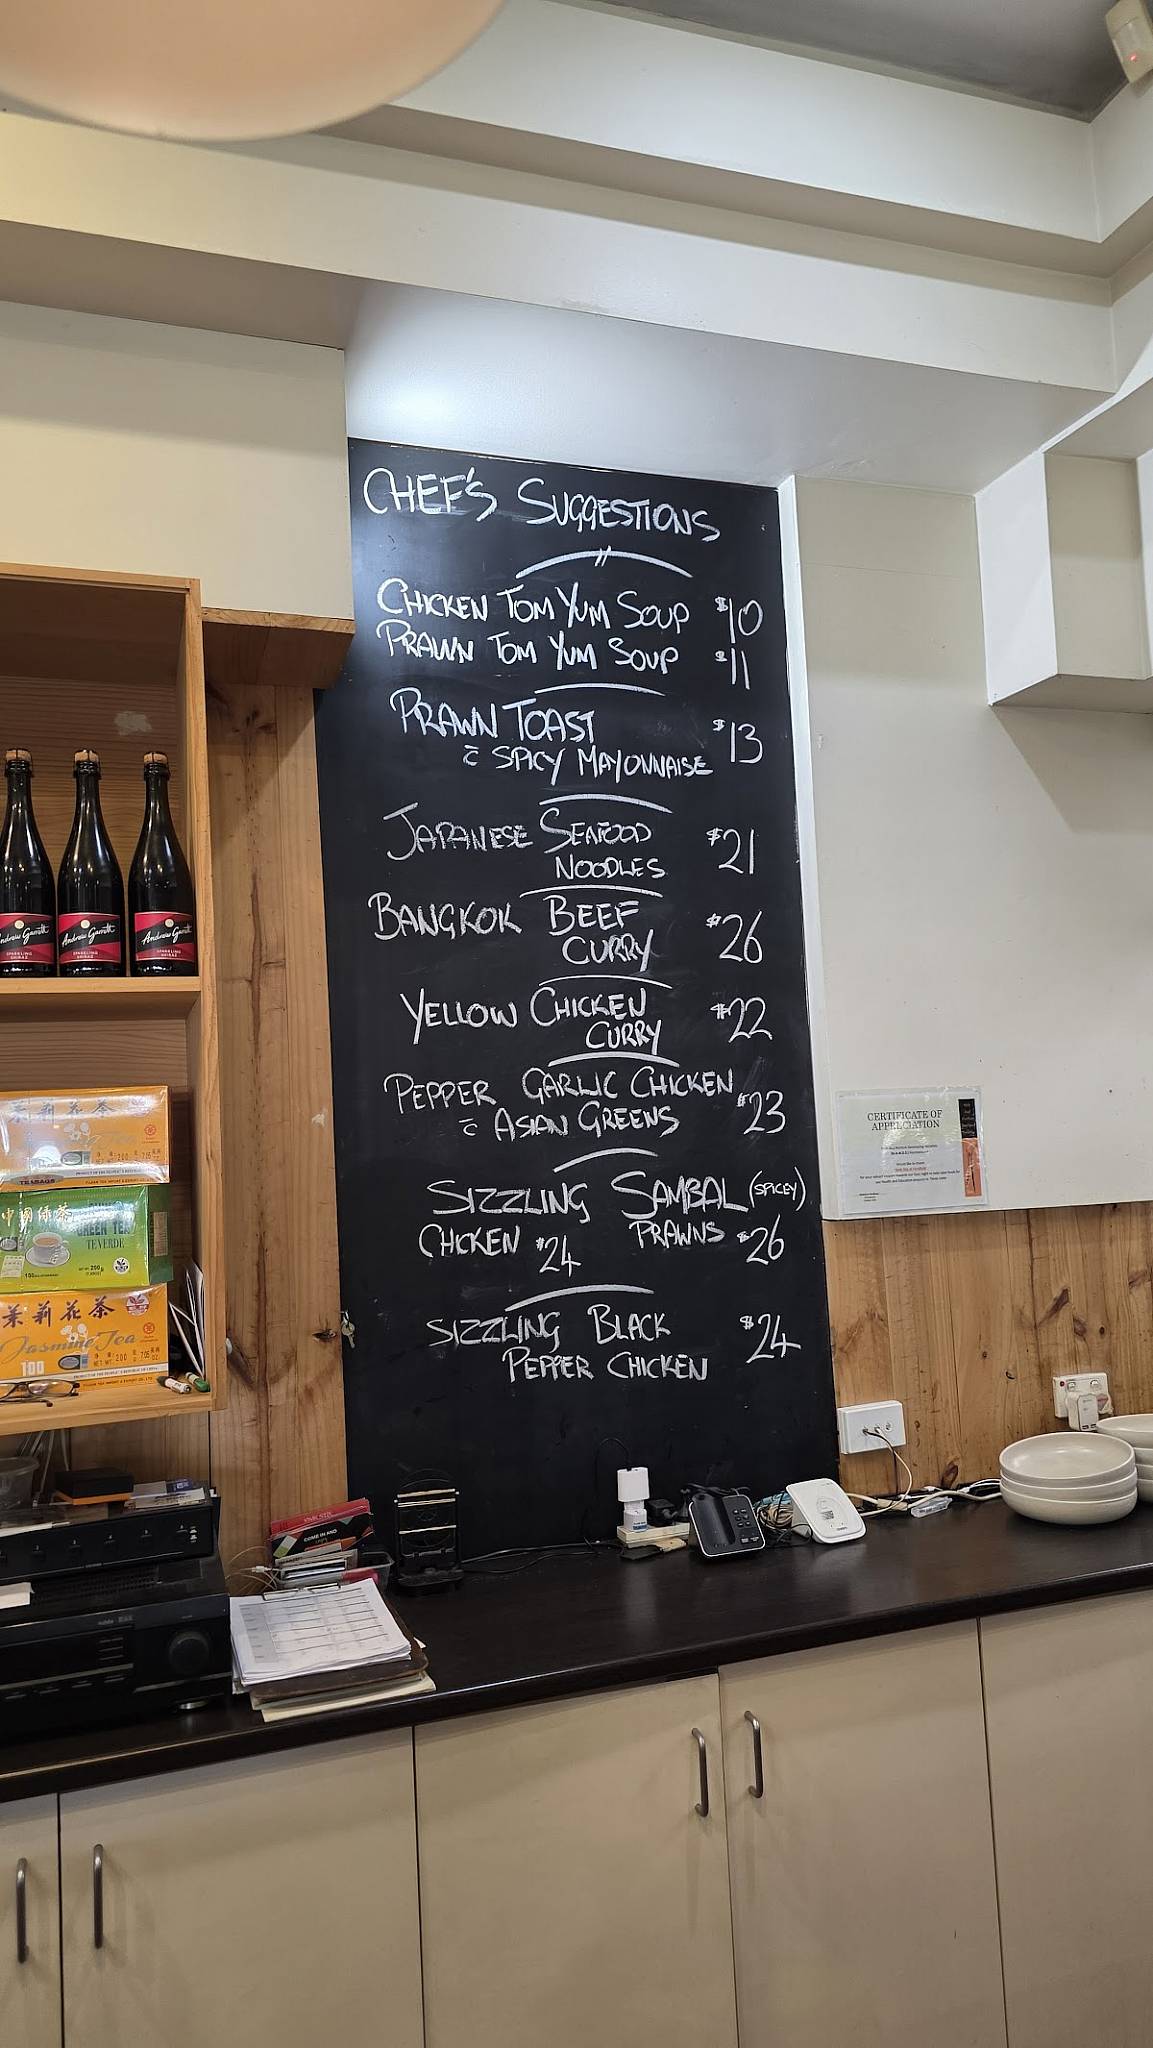 CHEF'S SUGGESTIONS
CHICKEN TOM YUM SOUP $10
PRAWN TOM YUM SOUP $11
PRAWN TOAST $13
c̄ SPICY MAYONNAISE
JAPANESE SEAFOOD $21
NOODLES
BANGKOK BEEF $26
CURRY
YELLOW CHICKEN $22
CURRY
PEPPER GARLIC CHICKEN $23
c̄ ASIAN GREENS
SIZZLING SAMBAL (SPICEY)
CHICKEN $24 PRAWNS $26
SIZZLING BLACK $24
PEPPER CHICKEN
Andrew Garrett
SPARKLING
SHIRAZ
Andrew Garrett
SPARKLING
SHIRAZ
Andrew Garrett
SPARKLING
SHIRAZ
茉莉花茶
TEABAGS
中國綠茶
GREEN TEA
TEVERDE
100
茉莉花茶
Jasmine Tea
100
CERTIFICATE OF
APPRECIATION
COME IN AND